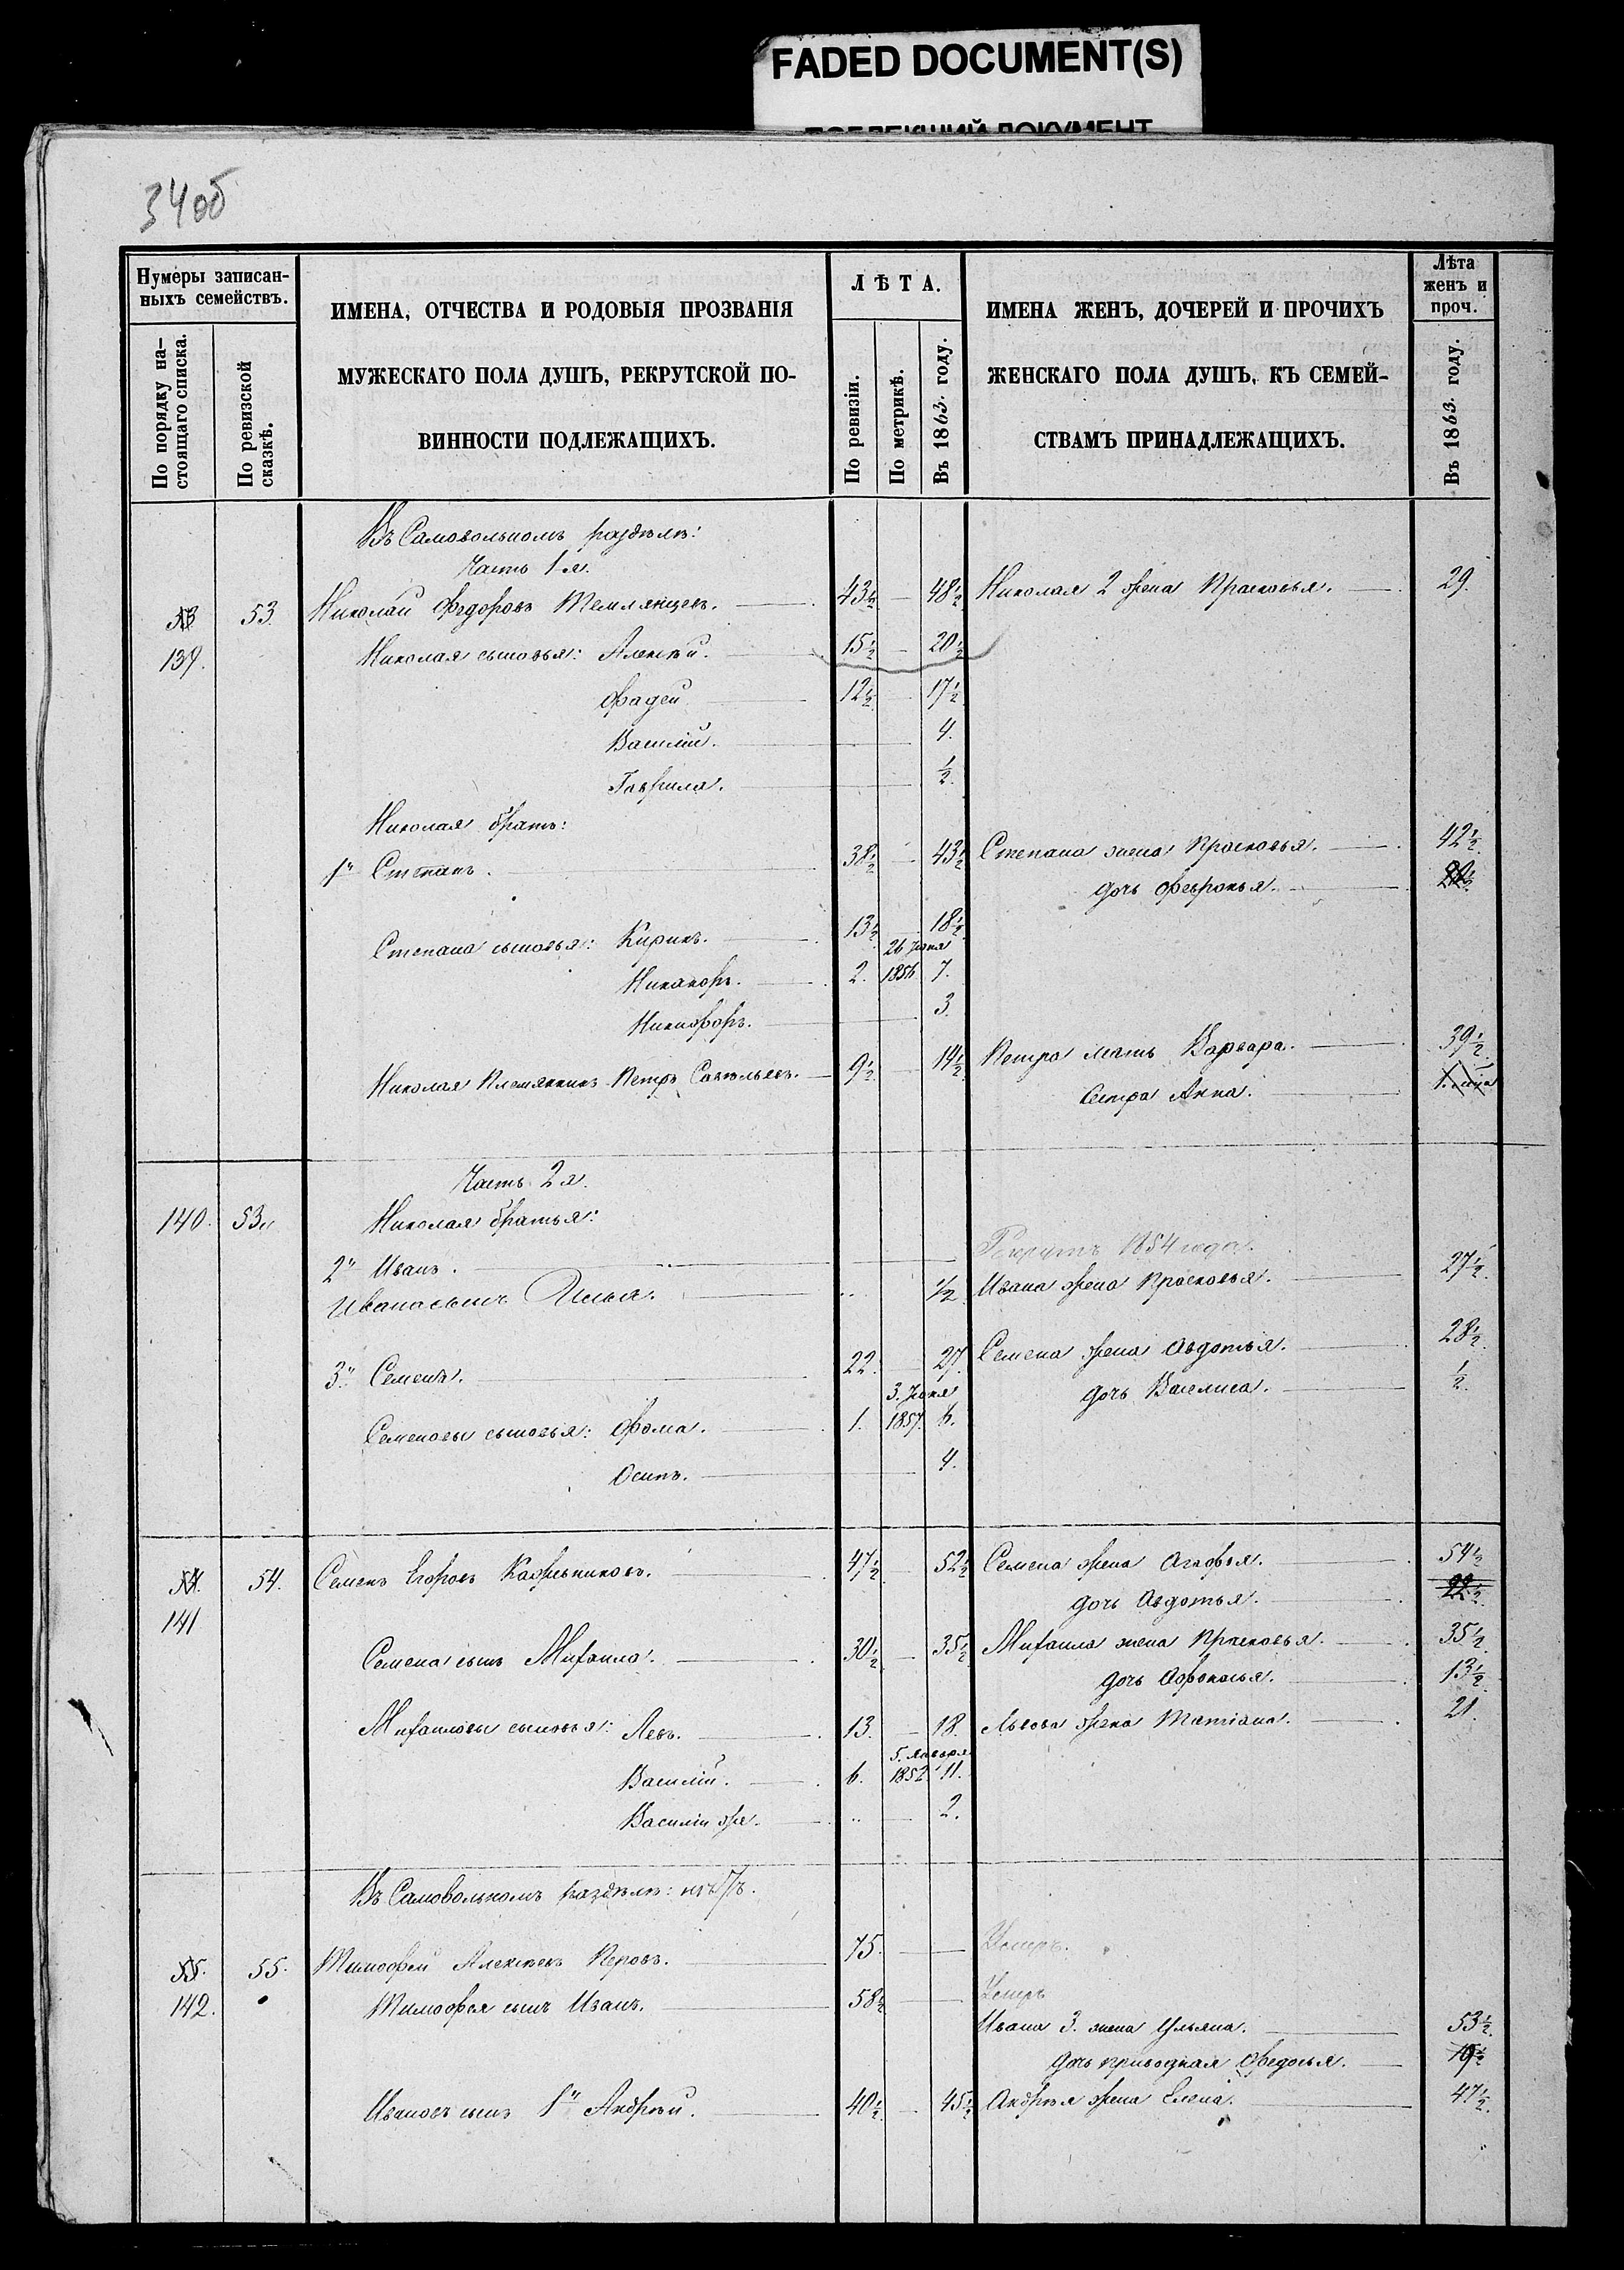 FADED DOCUMENT(S)
34об
Нумеры записан-
ныхъ семействъ.
По порядку на-
стоящаго списка.
По ревизской
сказкѣ.
ИМЕНА, ОТЧЕСТВА И РОДОВЫЯ ПРОЗВАНІЯ
МУЖЕСКАГО ПОЛА ДУШЪ, РЕКРУТСКОЙ ПО-
ВИННОСТИ ПОДЛЕЖАЩИХЪ.
ЛѢТА.
По ревизіи.
По метрикѣ.
Въ 1863. году.
ИМЕНА ЖЕНЪ, ДОЧЕРЕЙ И ПРОЧИХЪ
ЖЕНСКАГО ПОЛА ДУШЪ, КЪ СЕМЕЙ-
СТВАМЪ ПРИНАДЛЕЖАЩИХЪ.
Лѣта
женъ и
проч.
Въ 1863. году.
Въ Самовольномъ раздѣлѣ:
Часть 1я.
53 53. Николай Федоровъ Темлянцевъ. 43½ 48½ Николая 2 жена Прасковья. 29.
139. Николая сыновья: Алексѣй. 15½ 20½
Фадей 12½ 17½
Василій. 4.
Гаврила. ½.
Николая братъ:
1й Степанъ. 38½ 43½ Степана жена Прасковья. 42½
дочь Февронья.
Степана сыновья: Кирикъ. 13½ 18½
26 Іюня
Никаноръ. 2. 1856 7.
Никифоръ. 3.
Николая Племянникъ Петръ Савельевъ. 9½ 14½ Петра мать Варвара. 39½
сестра Анна.
Часть 2я.
140. 53. Николая братья:
2й Иванъ. Рекрутъ 1854 года.
Ивана сынъ Илья. ½ Ивана жена Прасковья. 27½
3й Семенъ. 22. 27. Семена жена Авдотья. 28½
3. Іюня дочь Василиса. ½.
Семеновы сыновья: Фома. 1. 1857. 6.
Осипъ. 4.
54. 54. Семенъ Егоровъ Кафельниковъ. 47½ 52½ Семена жена Агафья. 54½
141 дочь Авдотья. 22½
Семена сынъ Михаила. 30½ 35½ Михаила жена Прасковья. 35½
дочь Афонасья. 13½
Михаиловы сыновья: Левъ. 13. 18. Львова жена Татіана. 21.
5. Января
Василій. 6. 1852 11.
Василій же. 2.
Въ Самовольномъ раздѣлѣ:
55. 55. Тимофей Алексѣевъ Перовъ. 75. Умеръ.
142. Тимофея сынъ Иванъ. 58½ Умеръ
Ивана 3. жена Ульяна. 53½
дочь приводная Федосья.
Ивановъ сынъ 1й Андрѣй. 40½ 45½ Андрѣя жена Елена. 47½